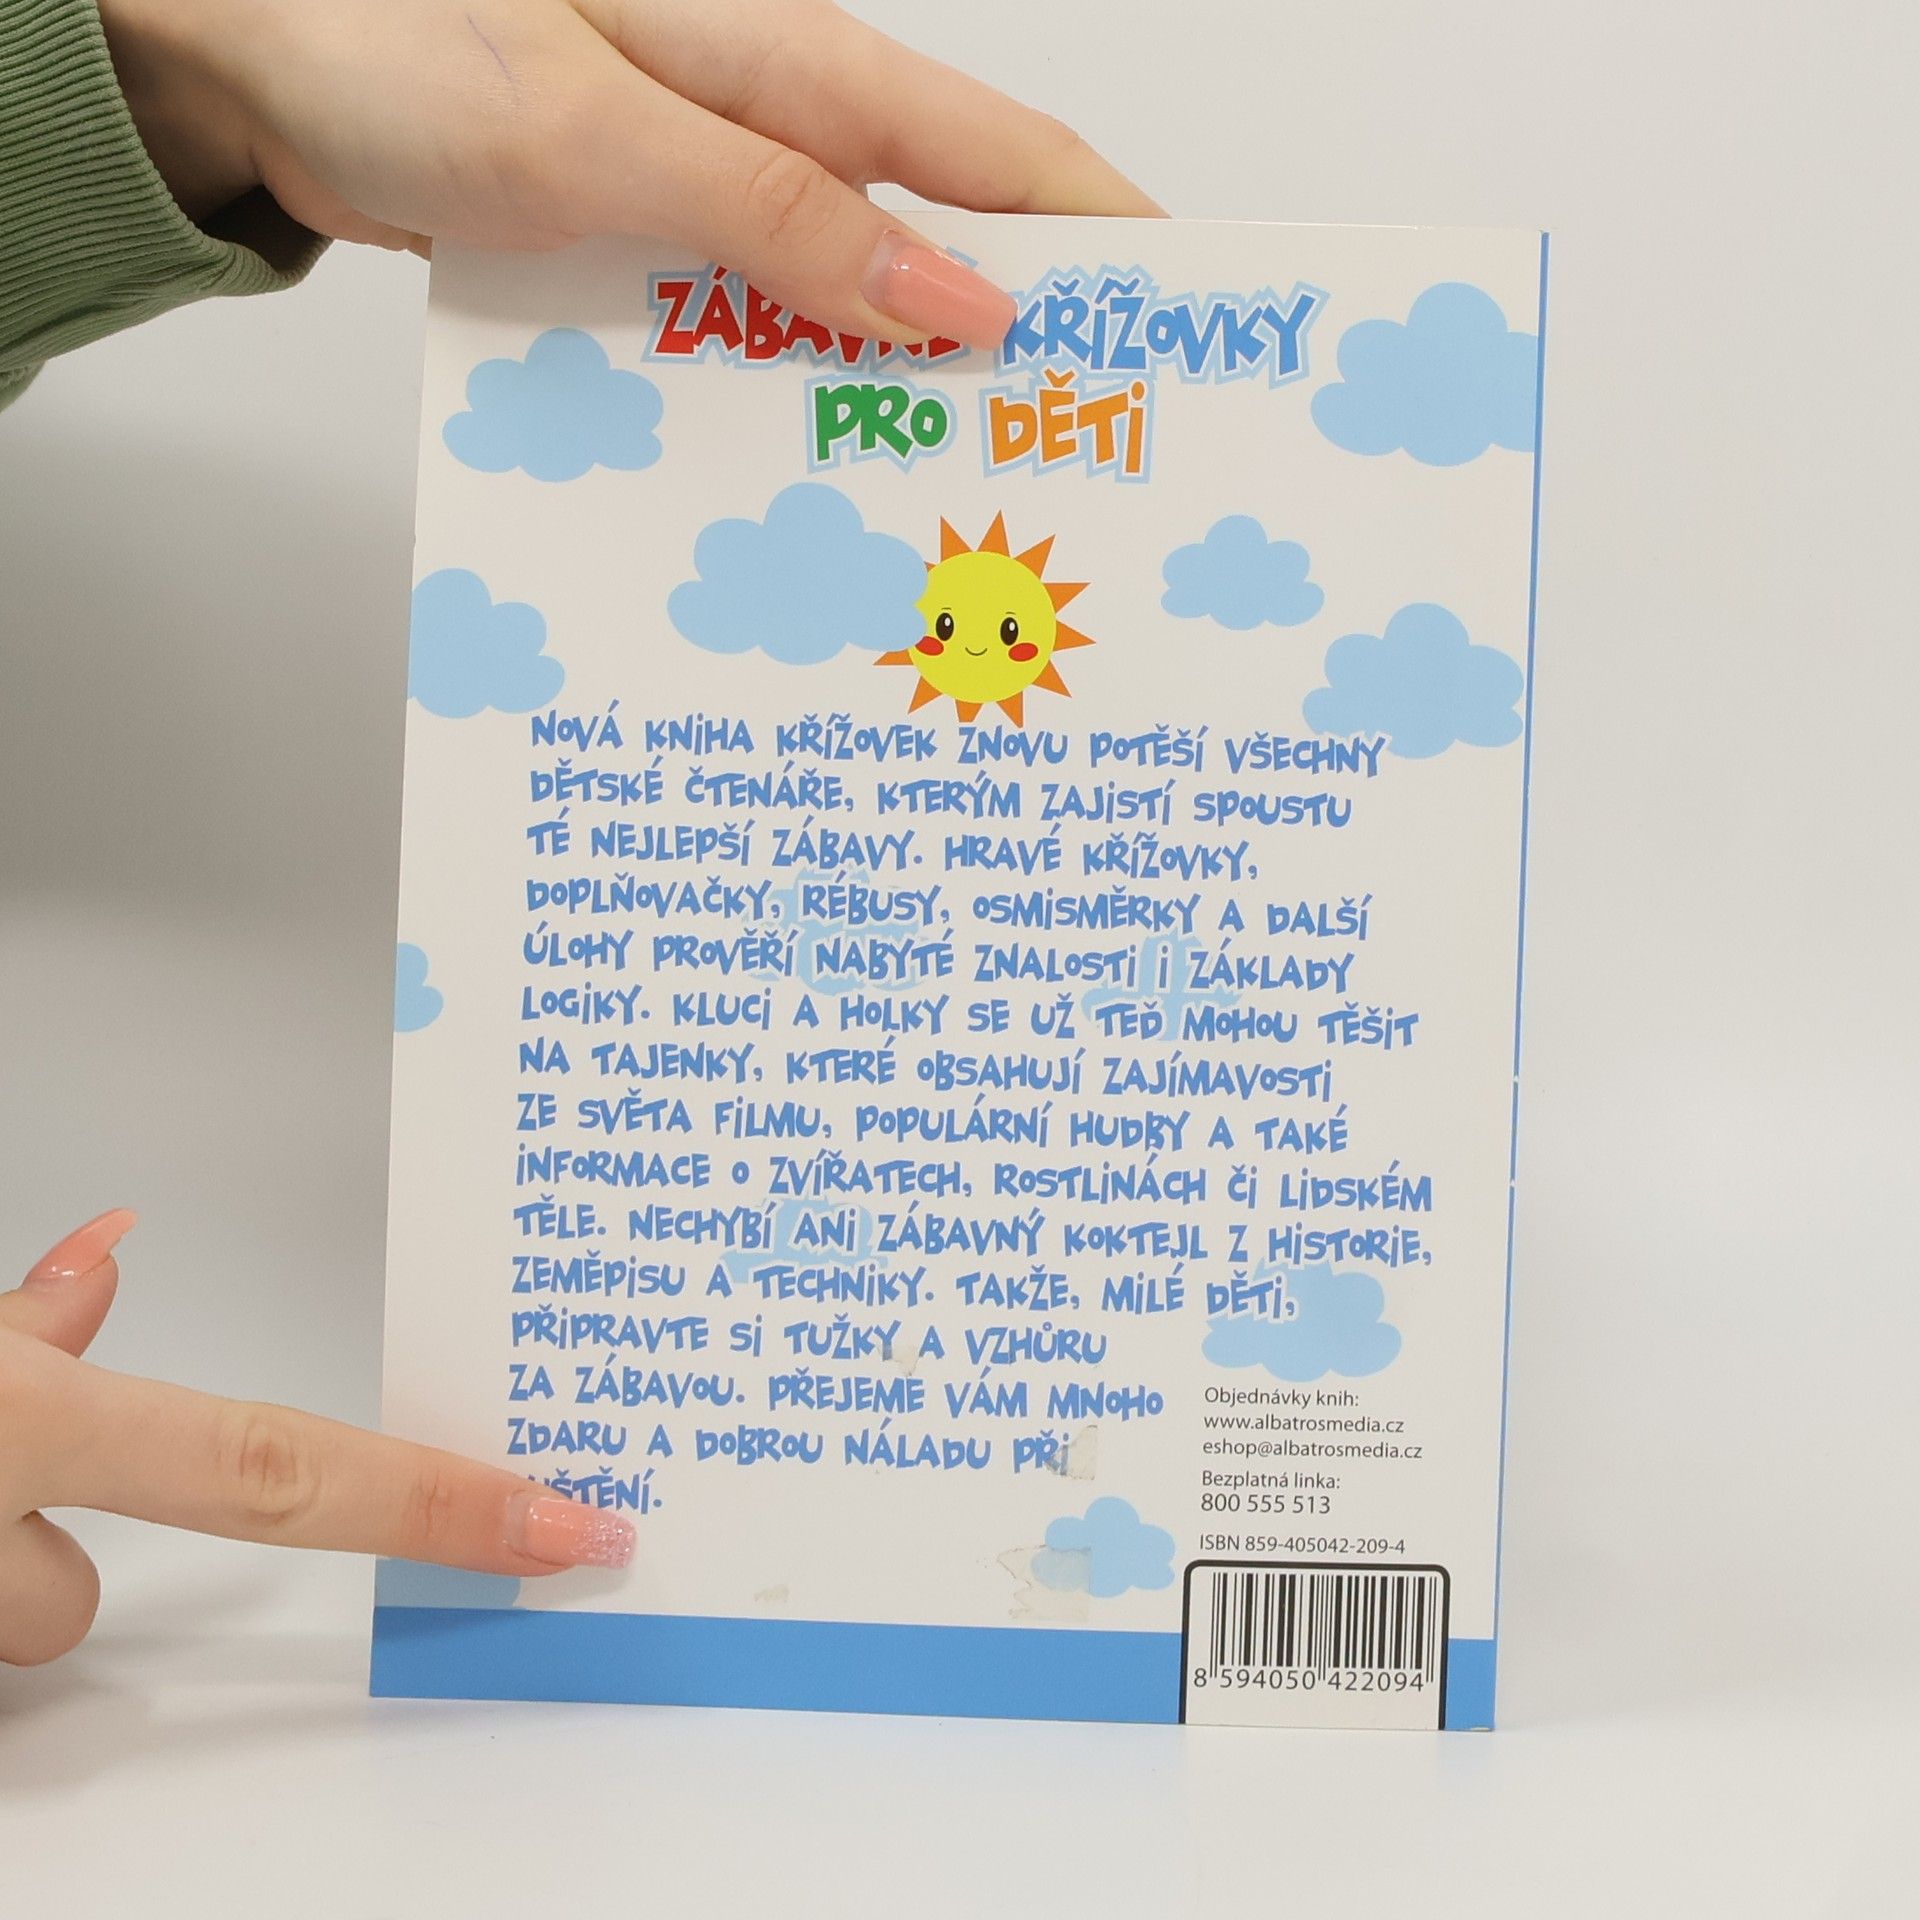 ZÁBAVNÉ KŘÍŽOVKY
PRO DĚTI
NOVÁ KNIHA KŘÍŽOVEK ZNOVU POTĚŠÍ VŠECHNY
DĚTSKÉ ČTENÁŘE, KTERÝM ZAJISTÍ SPOUSTU
TÉ NEJLEPŠÍ ZÁBAVY. HRAVÉ KŘÍŽOVKY,
DOPLŇOVAČKY, RÉBUSY, OSMISMĚRKY A DALŠÍ
ÚLOHY PROVĚŘÍ NABYTÉ ZNALOSTI I ZÁKLADY
LOGIKY. KLUCI A HOLKY SE UŽ TEĎ MOHOU TĚŠIT
NA TAJENKY, KTERÉ OBSAHUJÍ ZAJÍMAVOSTI
ZE SVĚTA FILMU, POPULÁRNÍ HUDBY A TAKÉ
INFORMACE O ZVÍŘATECH, ROSTLINÁCH ČI LIDSKÉM
TĚLE. NECHYBÍ ANI ZÁBAVNÝ KOKTEJL Z HISTORIE,
ZEMĚPISU A TECHNIKY. TAKŽE, MILÉ DĚTI,
PŘIPRAVTE SI TUŽKY A VZHŮRU
ZA ZÁBAVOU. PŘEJEME VÁM MNOHO
ZDARU A DOBROU NÁLADU PŘI
Objednávky knih:
www.albatrosmedia.cz
eshop@albatrosmedia.cz
Bezplatná linka:
800 555 513
ISBN 859-405042-209-4
8 594050 422094